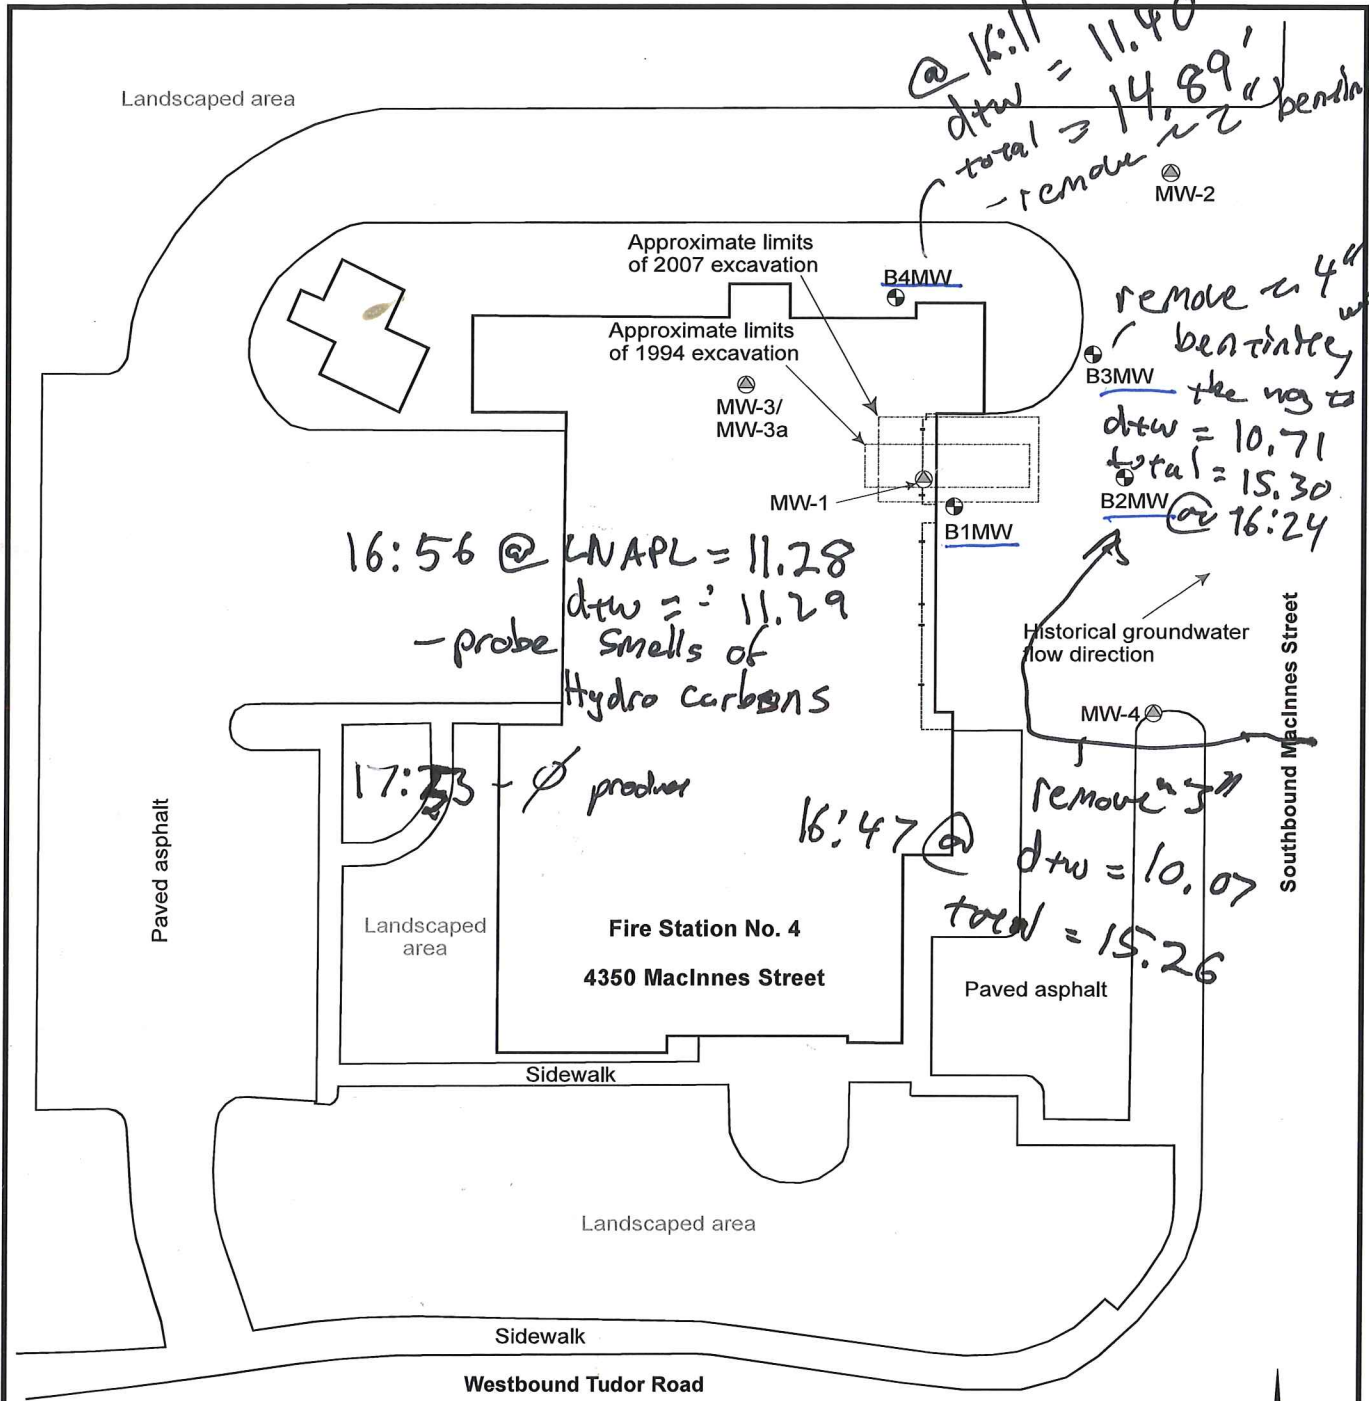 @ 16:11
dtw = 11.40'
total = 14.89'
- remove ~ 2"
Landscaped area
MW-2
Approximate limits
of 2007 excavation
B4MW
Approximate limits
of 1994 excavation
remove ~ 4"
B3MW
MW-3/
MW-3a
dtw = 10.71
total = 15.30
MW-1
B2MW
@ 16:24
B1MW
16:56 @ LNAPL = 11.28
dtw = 11.29
- probe smells of
Hydro carbons
Historical groundwater
flow direction
Southbound MacInnes Street
MW-4
17: - Ø
remove ~ 3"
16:47 @
dtw = 10.07
total = 15.26
Paved asphalt
Landscaped
area
Fire Station No. 4
4350 MacInnes Street
Paved asphalt
Sidewalk
Landscaped area
Sidewalk
Westbound Tudor Road